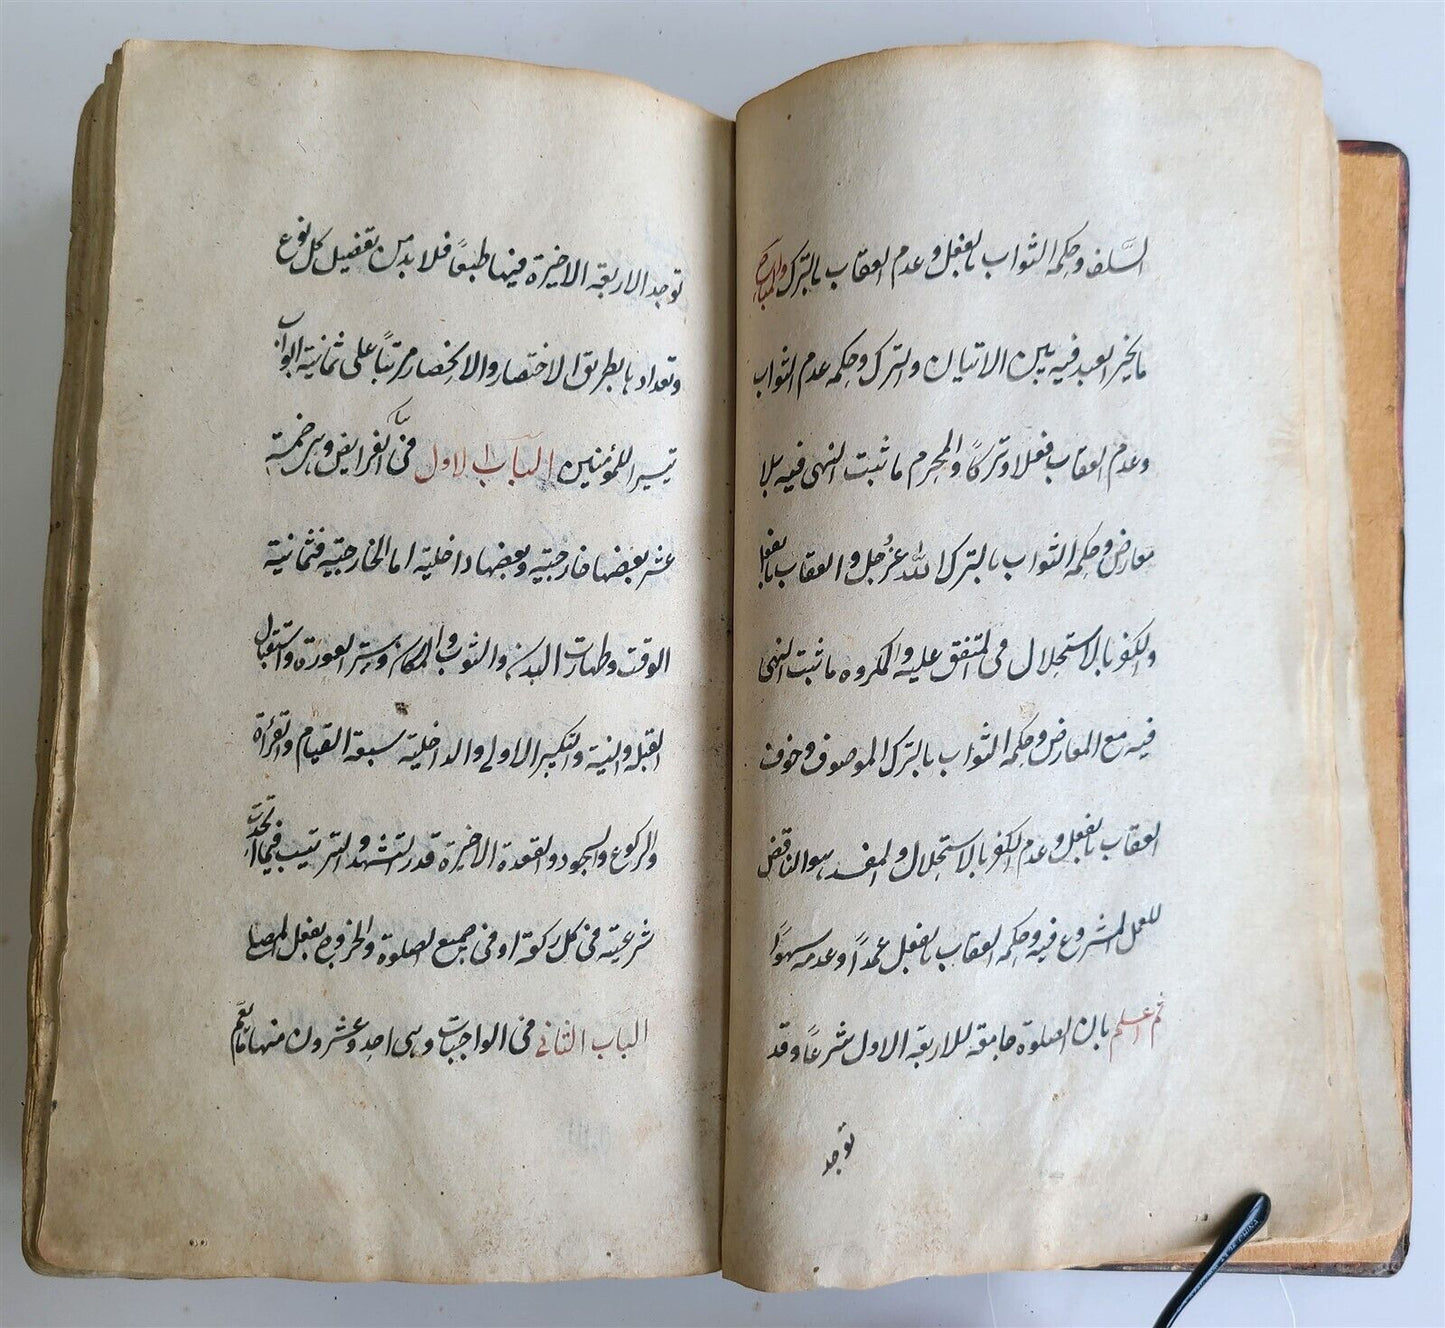 السلف وحكمه الثواب بالفعل وعدم العقاب بالترك والمباح
ما يخير العبد فيه بين الاتيان والترك وحكمه عدم الثواب
وعدم العقاب فعلا وتركاً والمحرم ما ثبت النهى فيه بلا
معارض وحكمه الثواب بالترك لله عزّ وجل والعقاب بالفعل
والكفر بالاستحلال فى المتفق عليه والمكروه ما ثبت النهى
فيه مع المعارض وحكمه الثواب بالترك الموصوف وخوف
العقاب بالفعل وعدم الكفر بالاستحلال والمفسد هو الناقض
للعمل المشروع فيه وحكمه العقاب بالفعل عمداً وعدمه سهواً
ثم اعلم بان الصلوة جامعة للاربعة الاول شرعاً وقد
توجد
توجد الاربعة الاخيرة فيها طبعاً فلا بد من تفصيل كل نوع
وتعدادها بطريق الاختصار والانحصار مرتباً على ثمانية ابواب
تيسيرا للمؤمنين الباب الاول فى الفرايض وهى خمسة
عشر بعضها خارجية وبعضها داخلية اما الخارجية فثمانية
الوقت وطهارت البدن والثوب والمكان وستر العورة واستقبال
القبلة والنية والتكبير الاولى والداخلية سبعة القيام والقرأة
والركوع والسجود والقعدة الاخيرة قدر التشهد والترتيب فيما اتحدت
شرعيته فى كل ركعة او فى جميع الصلوة والخروج بفعل المصلى
الباب الثانى فى الواجبات وهى احد وعشرون منها ما يعم